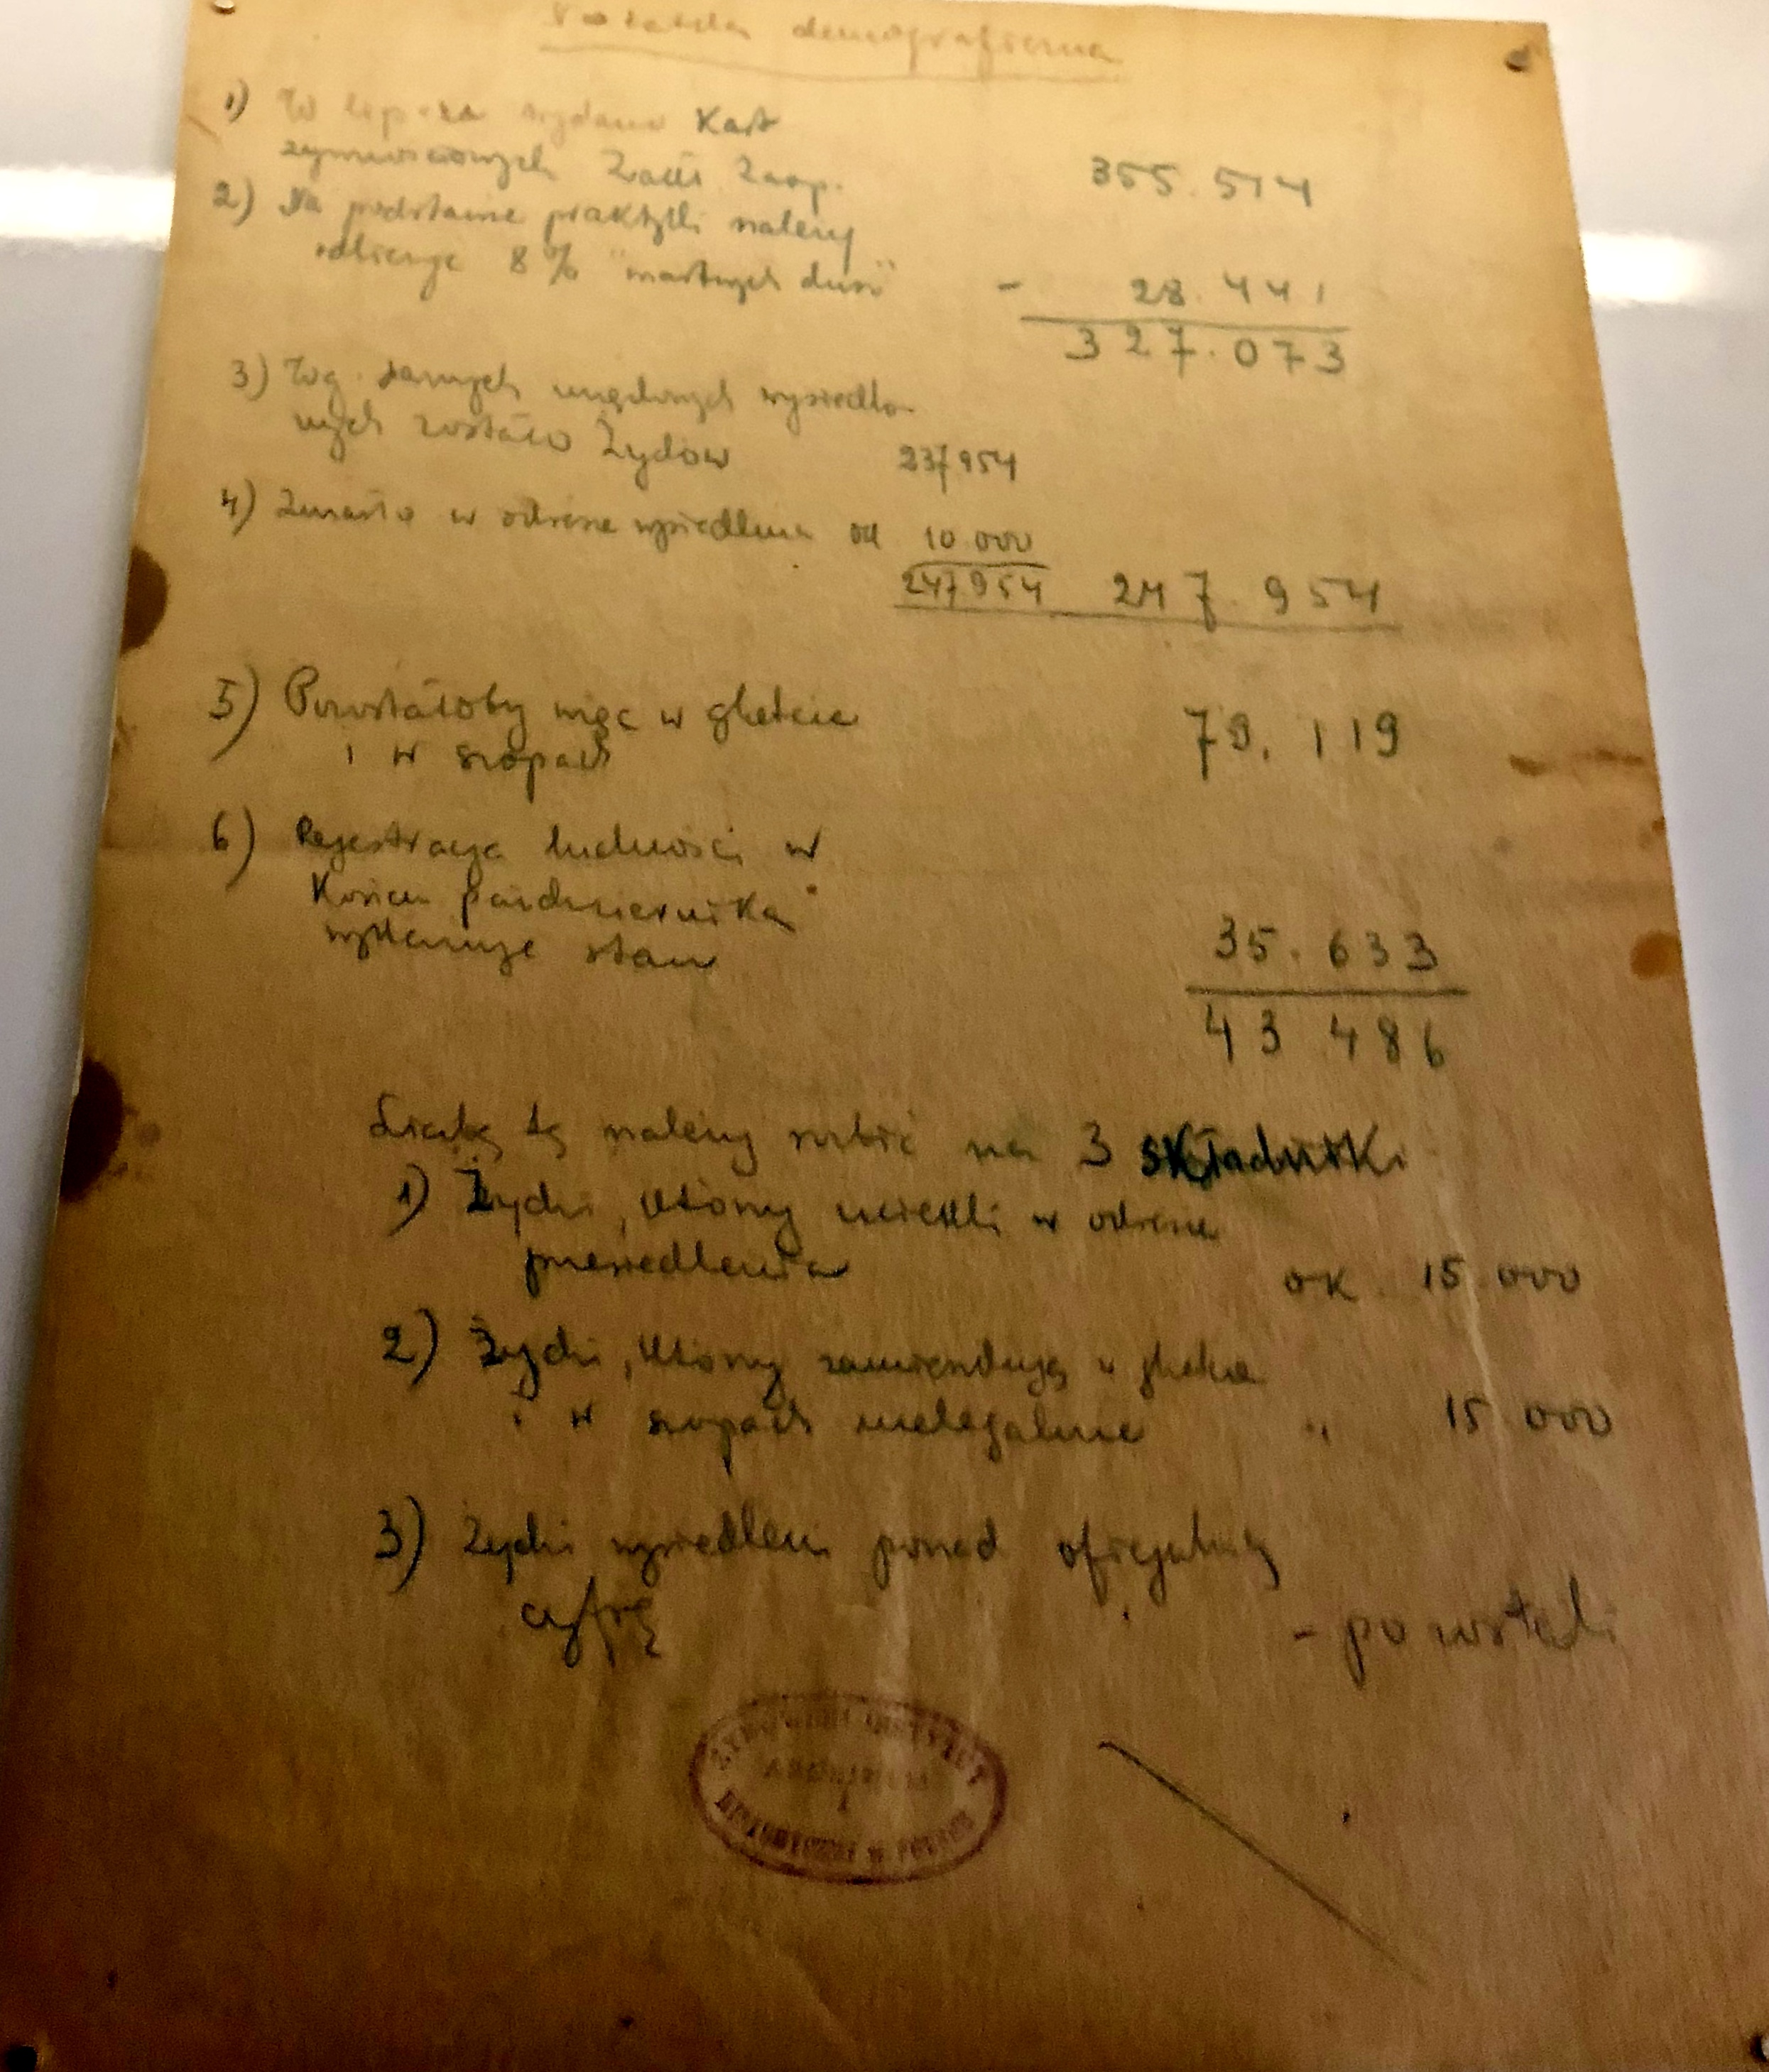 demograficzna
1) W lipcu wydano Kart
żywnościowych Zakł. Zaop. 355.514
2) Na podstawie praktyki należy
odliczyć 8% "martwych dusz" - 28.441
327.073
3) Wg. danych urzędowych wysiedlo-
nych zostało Żydów 237954
4) Zmarło w okresie wysiedlenia ok 10.000
247954 247.954
5) Pozostałoby więc w ghetcie
i w szopach 79.119
6) Rejestracja ludności w
Końcu października
wykazuje stan 35.633
43 486
Liczbę tę należy rozbić na 3 składniki
1) Żydzi, którzy uciekli w okresie
przesiedlenia ok. 15 000
2) Żydzi, którzy zamieszkują w ghetcie
i w szopach nielegalnie " 15 000
3) Żydzi wysiedleni ponad oficjalną
cyfrę - pozostali
ŻYDOWSKI INSTYTUT
ARCHIWUM
HISTORYCZNY W POLSCE